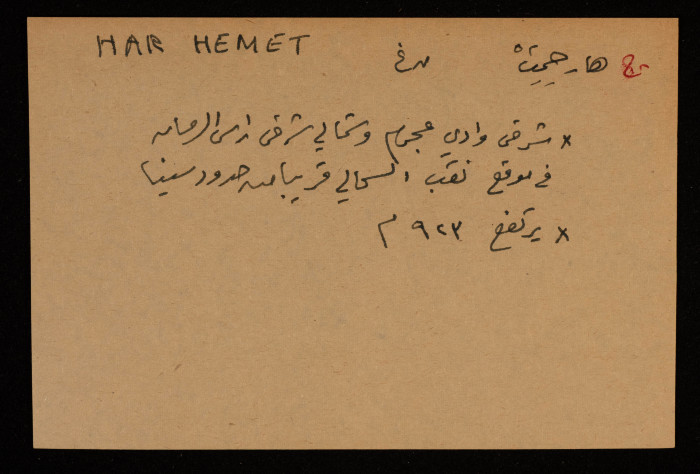 HAR HEMET هار حِمِتْ
× شرقي وادي عجرم وشمالي شرقي راس الرمانه
في موقع نقب السحالي قريبا من حدود سينا
× يرتفع ٩٢٣ م